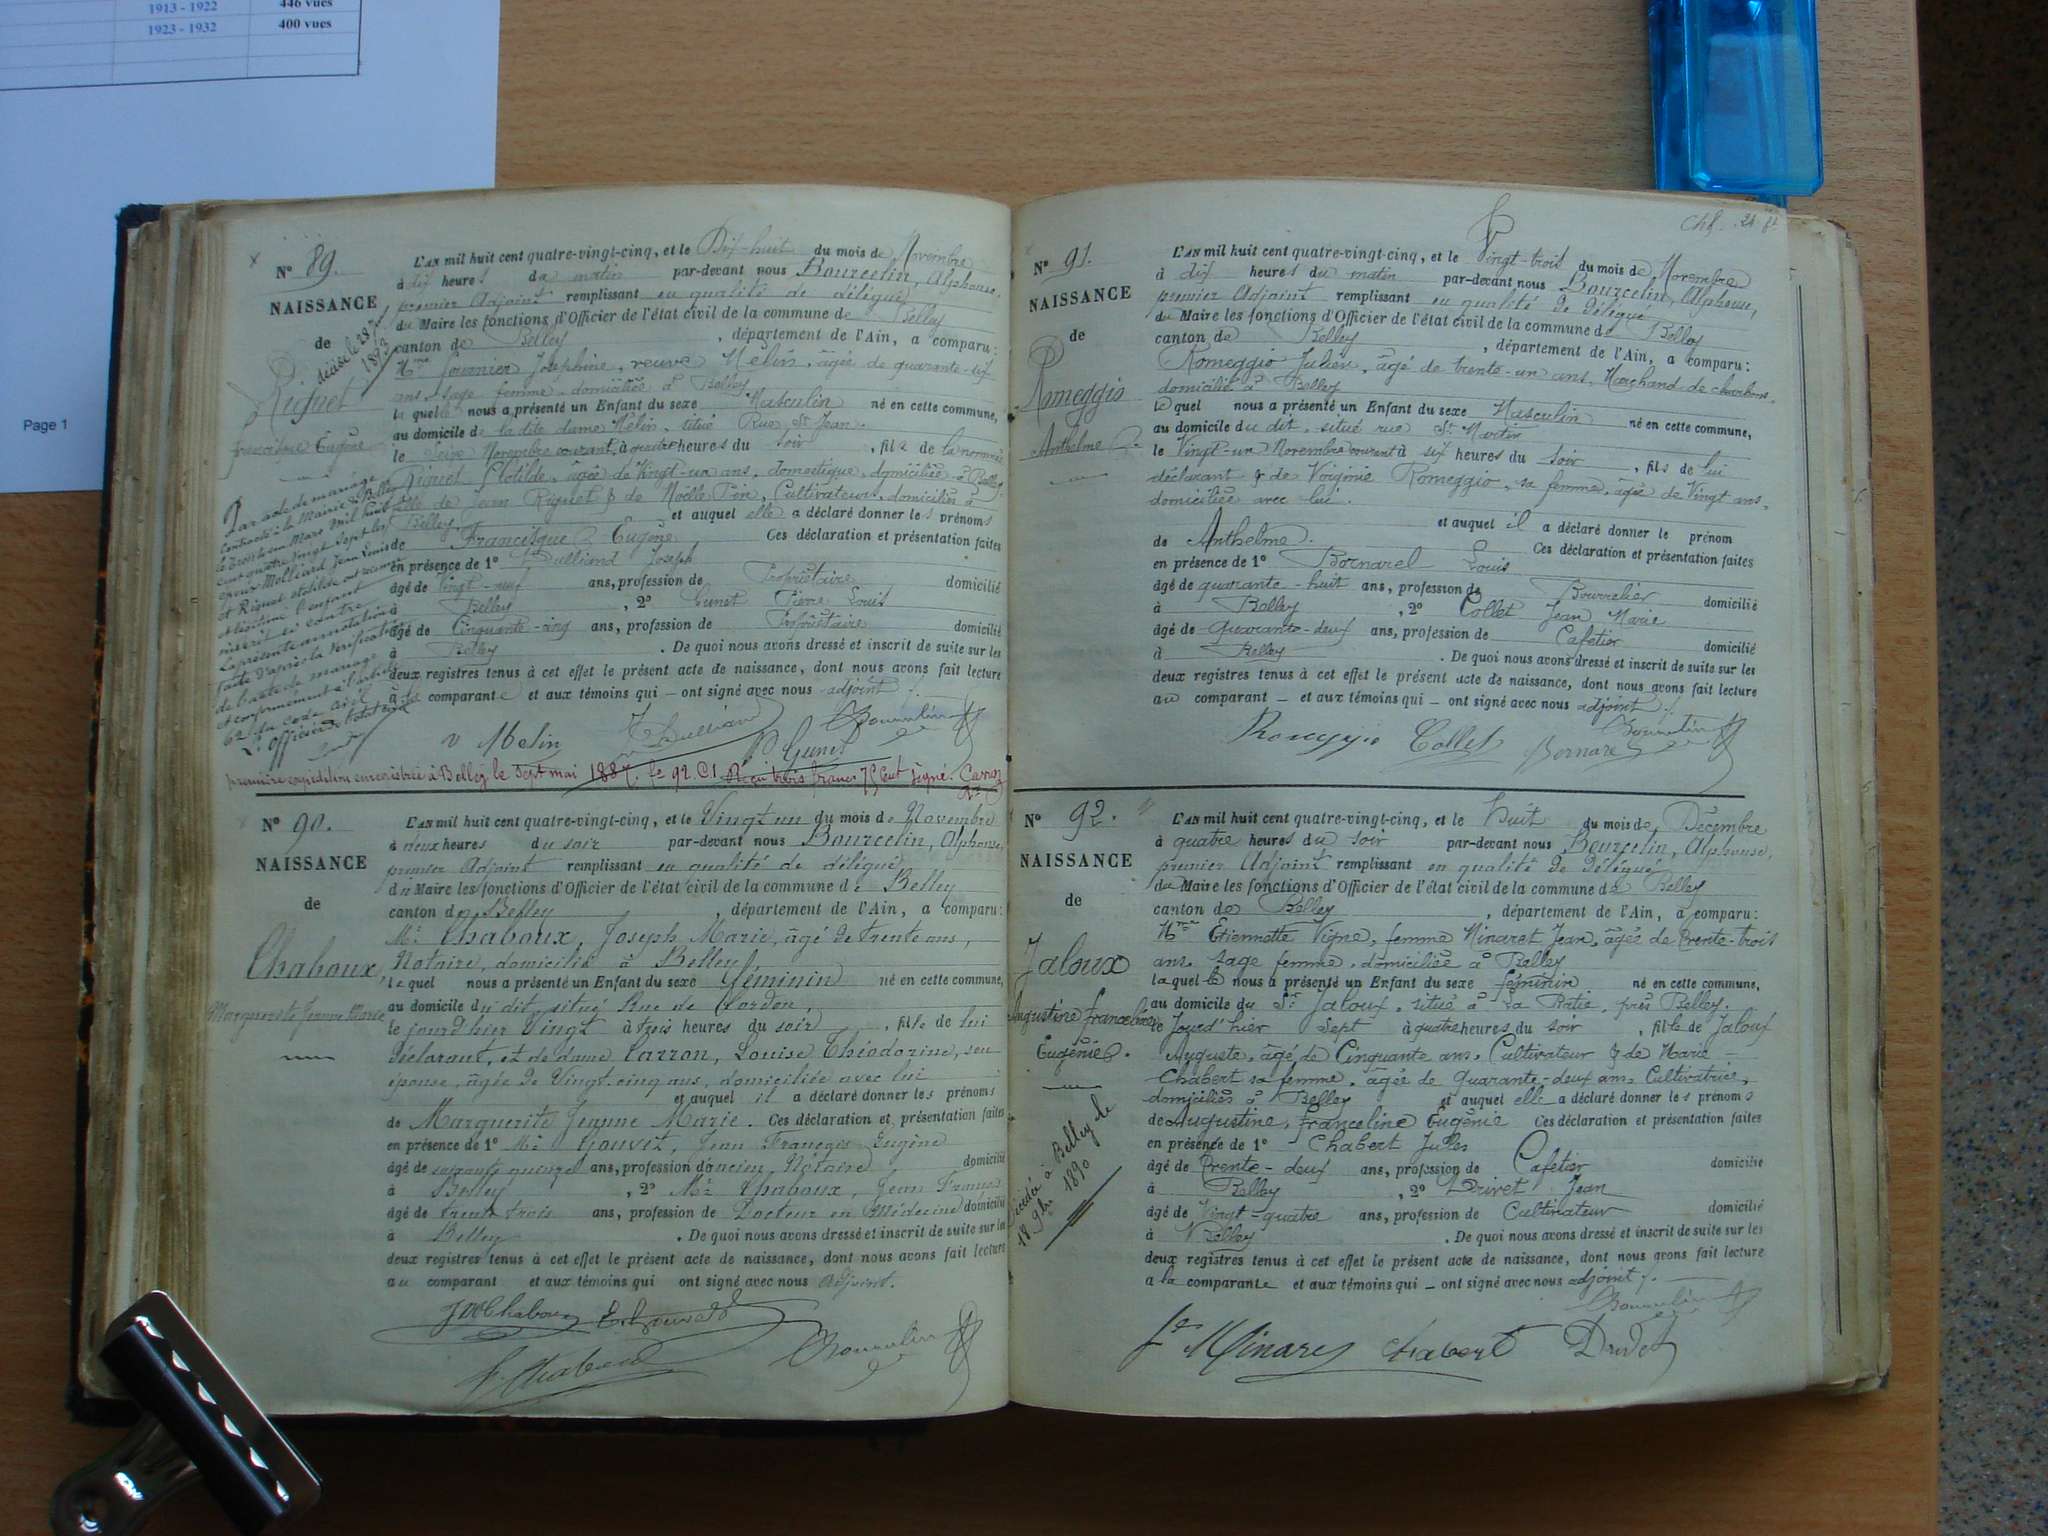 1913 - 1922 446 vues
1923 - 1932 400 vues
Page 1
N° 89.
NAISSANCE
de
Riguet
Francisque Eugène
décédé le
1873
Par acte de mariage
contracté à la Mairie de Belley
le trente un Mars mil huit
cent quatre vingt sept les
époux Molliard Jean Louis
et Riguet Clotilde ont reconnu
et légitimé l'enfant
inscrit ci contre
La présente annotation
faite d'après la vérification
de l'acte de mariage
et conformément à l'article
62 du Code civil
L'officier de l'état civil
L'AN mil huit cent quatre-vingt-cinq, et le Dix-huit du mois de Novembre
à dix heures du matin par-devant nous Bourcelin, Alphonse,
premier Adjoint remplissant en qualité de délégué
du Maire les fonctions d'Officier de l'état civil de la commune de Belley
canton de Belley, département de l'Ain, a comparu:
Mme Fournier Joséphine, veuve Mélin, âgée de quarante-six
ans, sage femme, domiciliée à Belley
laquelle nous a présenté un Enfant du sexe Masculin né en cette commune,
au domicile de la dite dame Mélin, situé Rue St Jean,
le seize Novembre courant, à quatre heures du soir, fils de la nommée
Riguet Clotilde, âgée de Vingt-un ans, domestique, domiciliée à Belley,
fille de Jean Riguet & de Noëlle Pin, Cultivateurs, domiciliés à
Belley, et auquel elle a déclaré donner les prénoms
de Francisque Eugène Ces déclaration et présentation faites
en présence de 1° Dulliand Joseph
âgé de Vingt-neuf ans, profession de Propriétaire domicilié
à Belley, 2° Gunet Pierre Louis
âgé de Cinquante-cinq ans, profession de Propriétaire domicilié
à Belley. De quoi nous avons dressé et inscrit de suite sur les
deux registres tenus à cet effet le présent acte de naissance, dont nous avons fait lecture
à la comparante et aux témoins qui – ont signé avec nous adjoint.
v Melin J Dulliand Bourcelin
P Gunet
première expédition enregistrée à Belley le sept mai 1887. fo 92. C1 Reçu trois francs 75 Cent signé: Carron
N° 90.
NAISSANCE
de
Chaboux,
Marguerite Jeanne Marie
L'AN mil huit cent quatre-vingt-cinq, et le Vingt un du mois de Novembre
à deux heures du soir par-devant nous Bourcelin, Alphonse,
premier Adjoint remplissant en qualité de délégué
du Maire les fonctions d'Officier de l'état civil de la commune de Belley
canton de Belley, département de l'Ain, a comparu:
Mr Chaboux, Joseph Marie, âgé de trente ans,
Notaire, domicilié à Belley,
lequel nous a présenté un Enfant du sexe féminin né en cette commune,
au domicile du dit, situé Rue de Cordon,
le jourd'hier Vingt à trois heures du soir, fille de lui
déclarant, et de dame Carron, Louise Théodorine, son
épouse, âgée de Vingt-cinq ans, domiciliée avec lui
et auquel il a déclaré donner les prénoms
de Marguerite Jeanne Marie. Ces déclaration et présentation faites
en présence de 1° Mr Gouvet, Jean François Eugène
âgé de soixante quinze ans, profession d'ancien Notaire domicilié
à Belley, 2° Mr Chaboux, Jean Francs
âgé de trente trois ans, profession de Docteur en Médecine domicilié
à Belley. De quoi nous avons dressé et inscrit de suite sur les
deux registres tenus à cet effet le présent acte de naissance, dont nous avons fait lecture
au comparant et aux témoins qui ont signé avec nous Adjoint.
JM Chaboux
F. Chaboux Bourcelin
Chf. 24.
N° 91.
NAISSANCE
de
Romeggio
Anthelme
L'AN mil huit cent quatre-vingt-cinq, et le Vingt-trois du mois de Novembre
à dix heures du matin par-devant nous Bourcelin, Alphonse,
premier Adjoint remplissant en qualité de délégué
du Maire les fonctions d'Officier de l'état civil de la commune de Belley
canton de Belley, département de l'Ain, a comparu:
Romeggio Julien, âgé de trente-un ans, Marchand de charbons,
domicilié à Belley
lequel nous a présenté un Enfant du sexe Masculin né en cette commune,
au domicile du dit, situé rue St Martin
le Vingt-un Novembre courant à six heures du soir, fils de lui
déclarant & de Virginie Romeggio, sa femme, âgée de Vingt ans,
domiciliée avec lui.
et auquel il a déclaré donner le prénom
de Anthelme. Ces déclaration et présentation faites
en présence de 1° Bornarel Louis
âgé de quarante-huit ans, profession de Bourrelier domicilié
à Belley, 2° Collet Jean Marie
âgé de Quarante-deux ans, profession de Cafetier domicilié
à Belley. De quoi nous avons dressé et inscrit de suite sur les
deux registres tenus à cet effet le présent acte de naissance, dont nous avons fait lecture
au comparant – et aux témoins qui – ont signé avec nous adjoint.
Romeggio Collet Bornarel Bourcelin
N° 92.
NAISSANCE
de
Jaloux
Augustine Franceline
Eugénie.
Décédée à Belley le
18 9bre 1890
L'AN mil huit cent quatre-vingt-cinq, et le Huit du mois de Décembre
à quatre heures du soir par-devant nous Bourcelin, Alphonse,
premier Adjoint remplissant en qualité de délégué
du Maire les fonctions d'Officier de l'état civil de la commune de Belley
canton de Belley, département de l'Ain, a comparu:
Mme Etiennette Vigne, femme Minaret Jean, âgée de trente-trois
ans, sage femme, domiciliée à Belley
laquelle nous a présenté un Enfant du sexe féminin né en cette commune,
au domicile du Sr Jaloux, situé à La Ratie, près Belley,
le Jourd'hier Sept à quatre heures du soir, fille de Jaloux
Auguste, âgé de Cinquante ans, Cultivateur & de Marie
Chabert sa femme, âgée de Quarante-deux ans Cultivatrice,
domiciliés à Belley et auquel elle a déclaré donner les prénoms
de Augustine, Franceline Eugénie Ces déclaration et présentation faites
en présence de 1° Chabert Jules
âgé de trente-deux ans, profession de Cafetier domicilié
à Belley, 2° Drivet Jean
âgé de Vingt-quatre ans, profession de Cultivateur domicilié
à Belley. De quoi nous avons dressé et inscrit de suite sur les
deux registres tenus à cet effet le présent acte de naissance, dont nous avons fait lecture
à la comparante et aux témoins qui – ont signé avec nous adjoint.
Bourcelin
fe Minaret Chabert Drivet